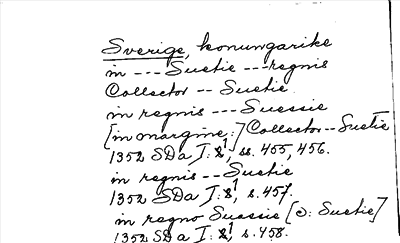 Sverige, konungarike
in --- Suetie --- regnis
Collector -- Suetie
in regnis --- Suessie
[in margine:] Collector -- Suetie
1352 SDa I:1, ss. 455, 456.
in regnis -- Suetie
1352 SDa I:1, s. 457.
in regno Suessie [ɔ: Suetie]
1352 SDa I:1, s. 458.